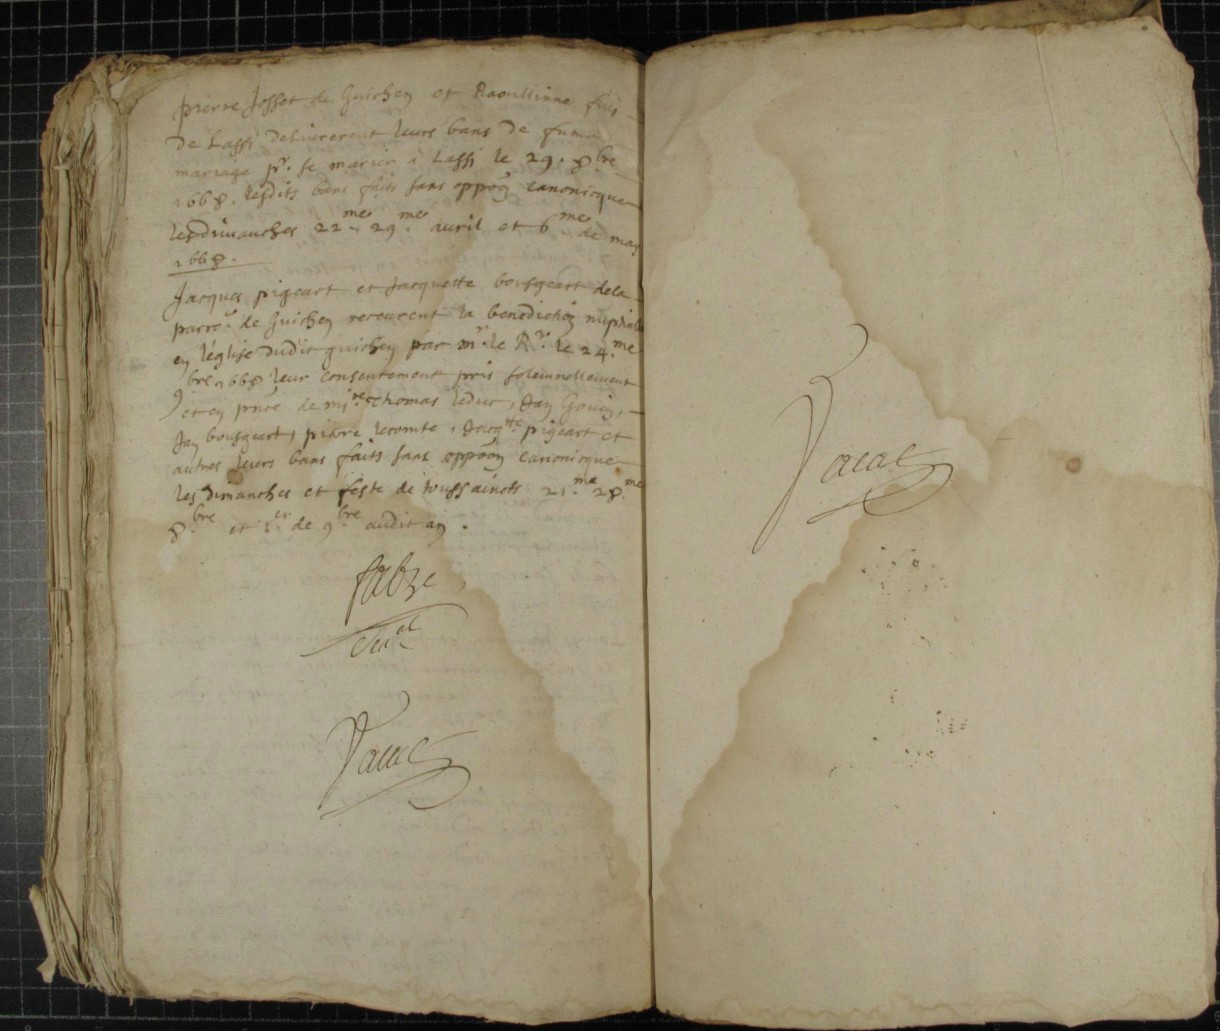 pierre Josset de Guichen et Raoullinne
de Lassi delivrerent leurs bans de futur
mariage pr. se marier a Lassi le 29. 8bre
1668. lesdits bans faits sans oppoon canonicque
les dimanches 22me 29me avril et 6me de may
1668.
Jacques pigeart et Jacquette bousgeart de la
parre. de Guichen receurent la benediction nuptialle
en l'église dudit guichen par mr. le Rr. le 24.me
9bre 1668 leur consentement pris solennellement
et en pnce de mire Thomas leduc, Jan Gouin,
Jan bousgeart, pierre lecomte, Jacqtte pigeart et
autres leurs bans faits sans oppoon canonicque
les dimanches et feste de toussaincts 21.me 28.me
8.bre et 1.er de 9.bre audit an.
fabre